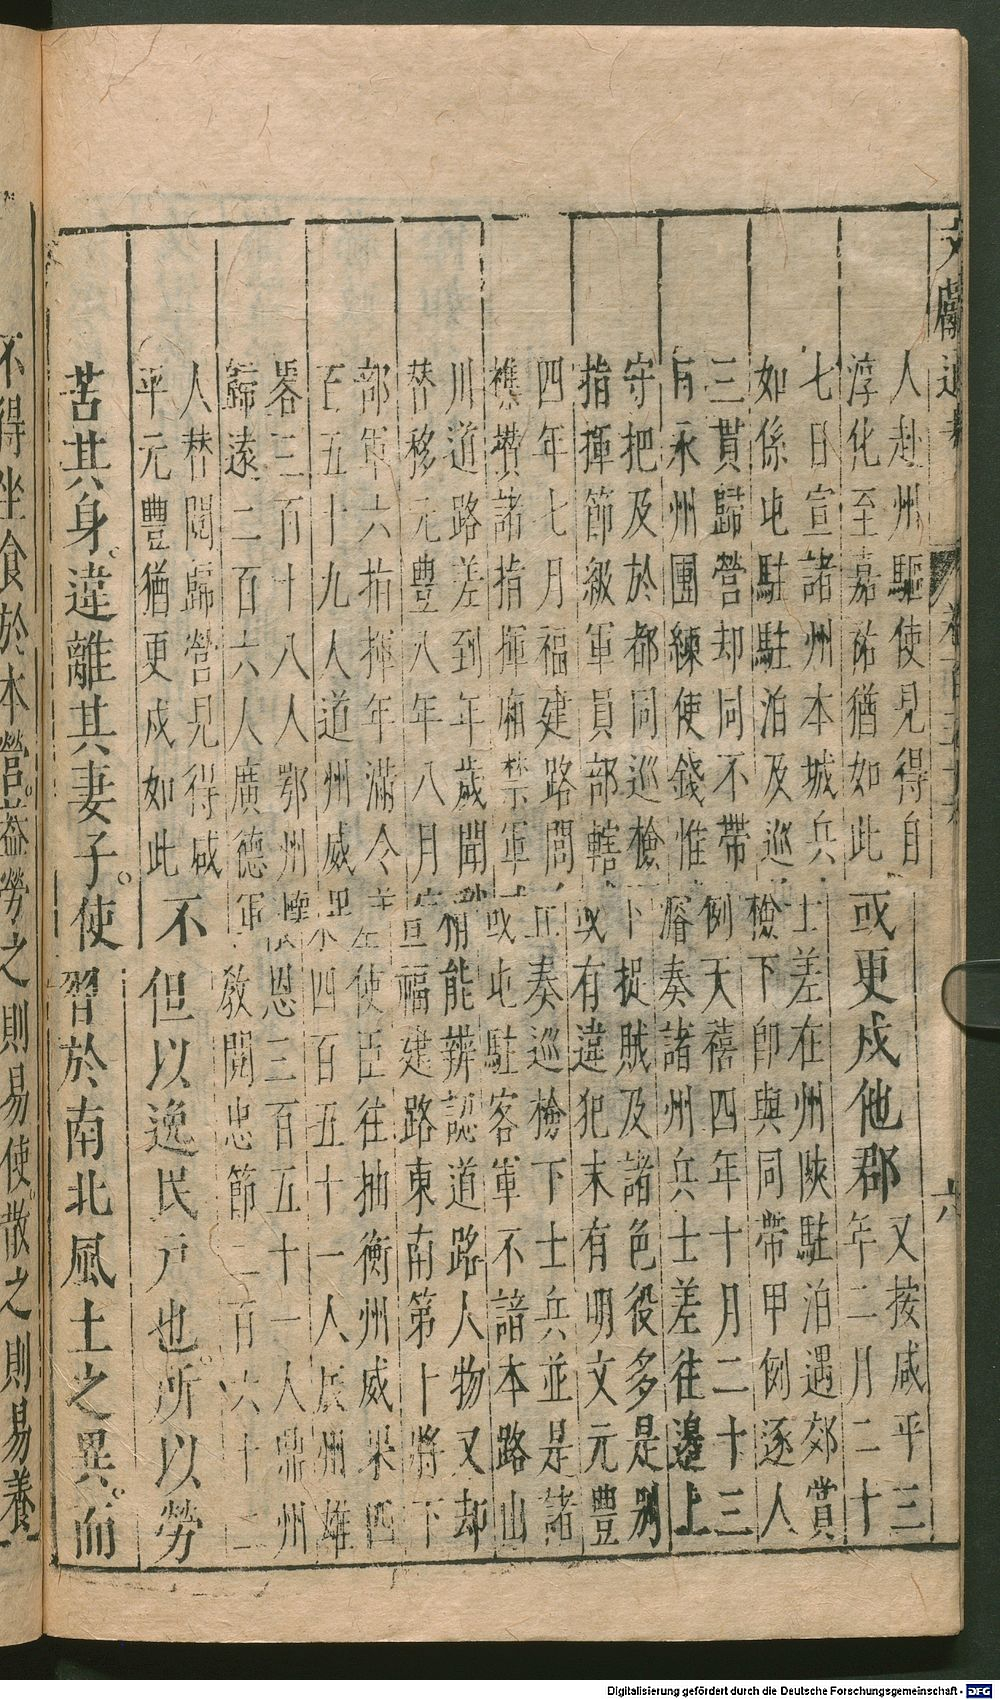 文獻通考
六
人赴州驅使見得自
淳化至嘉祐猶如此
或更戍他郡
又按咸平三
年二月二十
七日宣諸州本城兵士差在州陝駐泊遇郊賞
如係屯駐駐泊及巡檢下即與同帶甲例逐人
三貫歸營却同不帶例天禧四年十月二十三
有永州團練使錢惟濬奏諸州兵士差往邊上
守把及於都同巡檢下捉賊及諸色役多是別
指揮節級軍員部轄或有違犯末有明文元豐
四年七月福建路奏巡檢下士兵並是諸
樵攢諸指揮廂禁軍或屯駐客軍不諳本路山
川道路差到年歲間稍能辨認道路人物又却
替移元豐八年八月宣福建路東南第十將下
部軍六指揮年滿令差使臣往抽衡州威果四
百五十九人道州威果四百五十一人辰州雄
畧三百十八人鄂州恩三百五十一人鼎州
歸遠二百六人廣德軍教閱忠節二百六十二
人替閱歸營見得咸
平元豐猶更戍如此
不但以逸民戶也。所以勞
苦其身。違離其妻子。使習於南北風土之異。而
不得坐食於本營。蓋勞之則易使。散之則易養
Digitalisierung gefördert durch die Deutsche Forschungsgemeinschaft - DFG